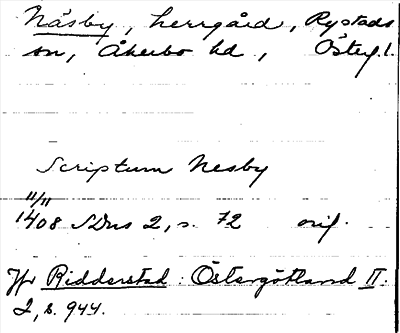 Näsby, herrgård, Rystads
sn, Åkerbo hd, Österg.l.
Scriptum Nesby
11/11
1408 SDns 2, s. 72 orig.
Jfr Ridderstad: Östergötland II.
2, s. 944.